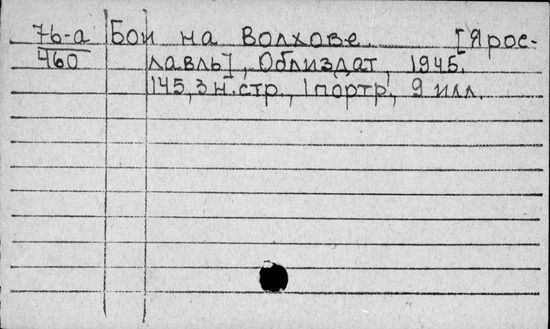 76-а Бои на Волхове. [Ярос-
460 лавль], Облиздат, 1945.
145, 3 н. стр., 1 портр., 9 илл.